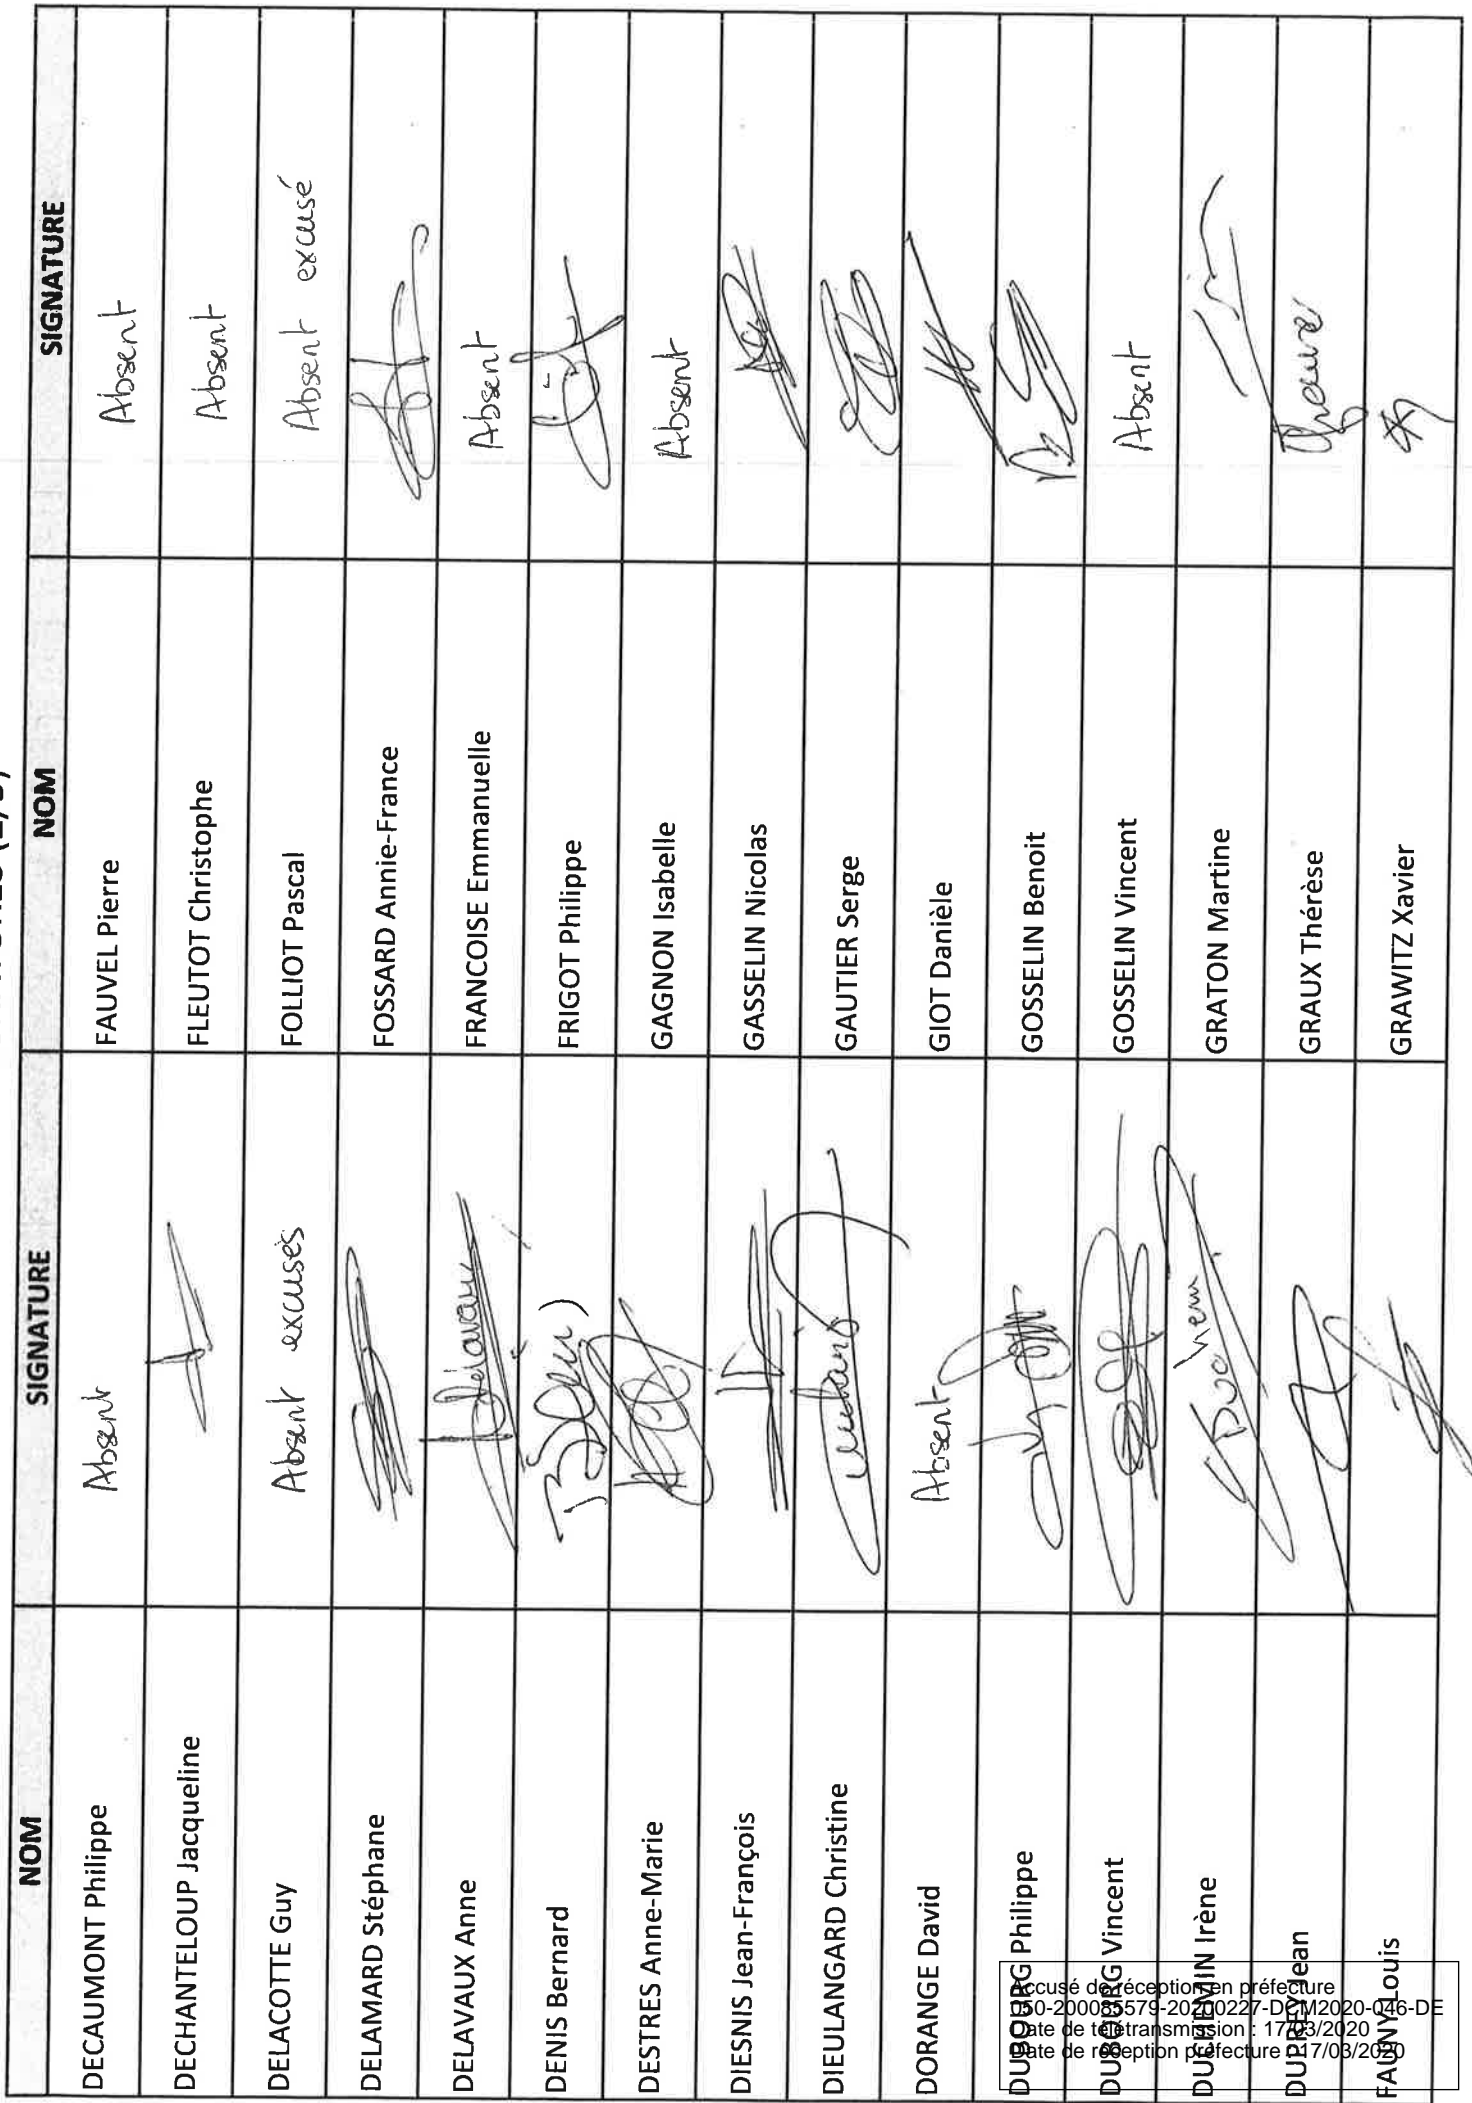 NOM SIGNATURE NOM SIGNATURE
DECAUMONT Philippe Absent FAUVEL Pierre Absent
DECHANTELOUP Jacqueline FLEUTOT Christophe Absent
DELACOTTE Guy Absent excusés FOLLIOT Pascal Absent excusé
DELAMARD Stéphane FOSSARD Annie-France
DELAVAUX Anne Delavaux FRANCOISE Emmanuelle Absent
DENIS Bernard FRIGOT Philippe
DESTRES Anne-Marie GAGNON Isabelle Absent
DIESNIS Jean-François GASSELIN Nicolas
DIEULANGARD Christine GAUTIER Serge
DORANGE David Absent GIOT Danièle
DUBOURG Philippe GOSSELIN Benoit
DUBOURG Vincent GOSSELIN Vincent Absent
DUCHEMIN Irène GRATON Martine
DUPREY Jean GRAUX Thérèse
FAUNY Louis GRAWITZ Xavier
Accusé de réception en préfecture
050-200085579-20200227-DCM2020-046-DE
Date de télétransmission : 17/03/2020
Date de réception préfecture : 17/03/2020